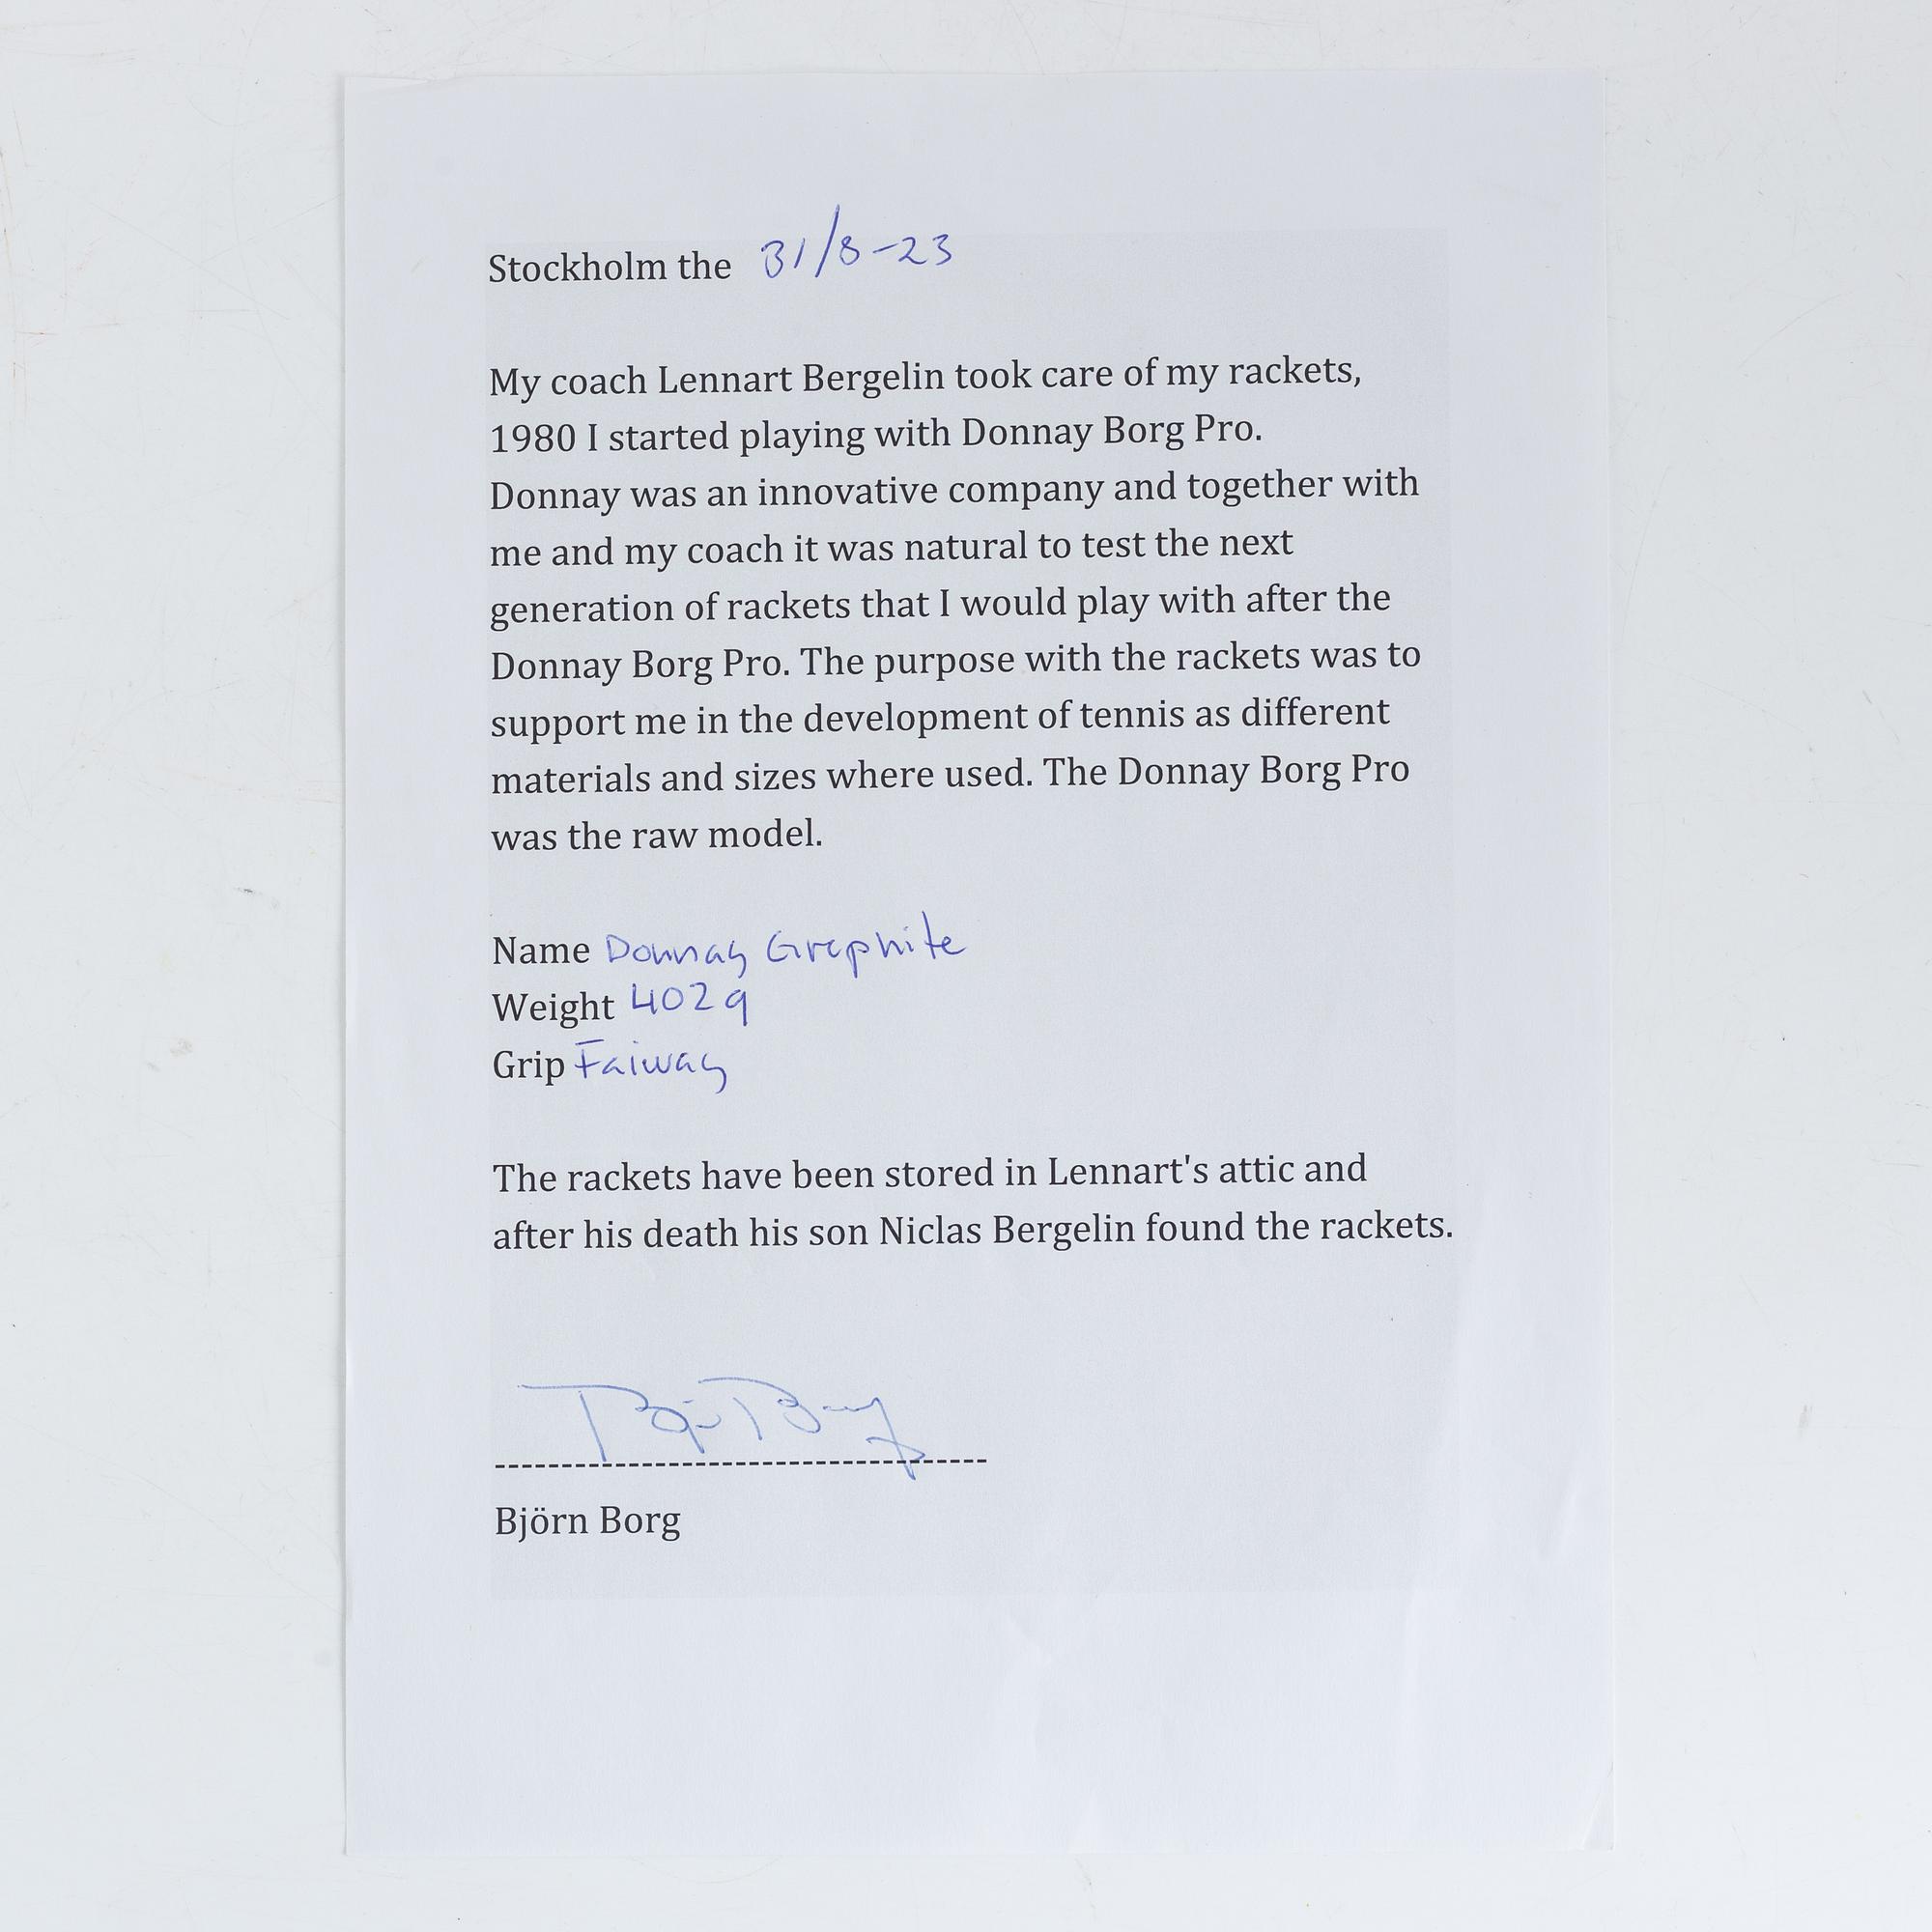 Stockholm the 31/8-23
My coach Lennart Bergelin took care of my rackets,
1980 I started playing with Donnay Borg Pro.
Donnay was an innovative company and together with
me and my coach it was natural to test the next
generation of rackets that I would play with after the
Donnay Borg Pro. The purpose with the rackets was to
support me in the development of tennis as different
materials and sizes where used. The Donnay Borg Pro
was the raw model.
Name Donnay Graphite
Weight 402g
Grip Faiway
The rackets have been stored in Lennart's attic and
after his death his son Niclas Bergelin found the rackets.
Björn Borg
Björn Borg